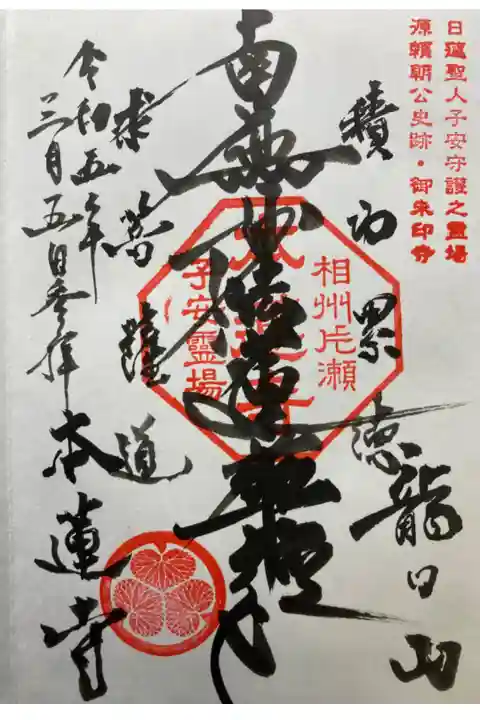 日蓮聖人子安守護之霊場
源頼朝公史跡・御朱印寺
積功累徳
龍口山
南無妙法蓮華経
相州片瀬
子安霊場
求菩薩道
令和五年
三月五日参拝
本蓮寺